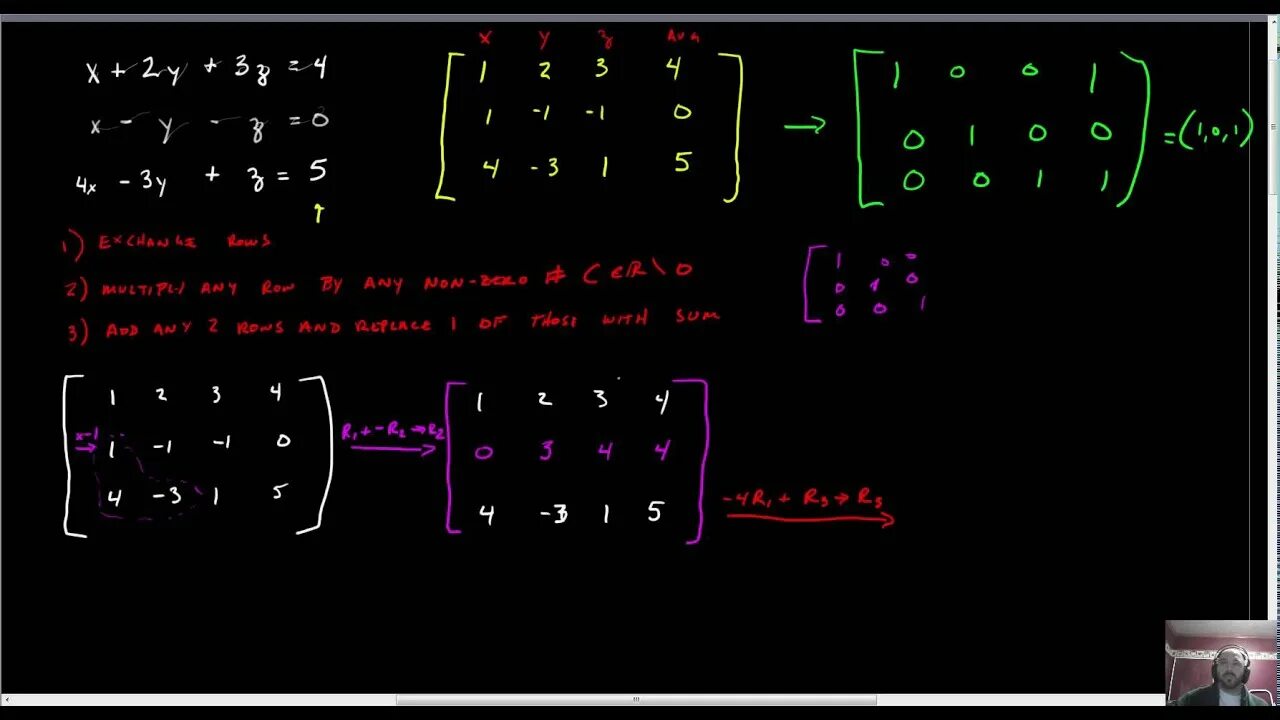 x + 2y + 3z = 4
x - y - z = 0
4x - 3y + z = 5
↑
x y z Aug
1 2 3 4
1 -1 -1 0
4 -3 1 5
→
1 0 0 1
0 1 0 0
0 0 1 1
= (1,0,1)
1) EXCHANGE ROWS
2) MULTIPLY ANY ROW BY ANY NON-ZERO # C ∈ ℝ \ 0
3) ADD ANY 2 ROWS AND REPLACE 1 OF THOSE WITH SUM
1 0 0
0 1 0
0 0 1
1 2 3 4
x-1 → 1 -1 -1 0
4 -3 1 5
R₁ + -R₂ → R₂
1 2 3 4
0 3 4 4
4 -3 1 5
-4R₁ + R₃ → R₃